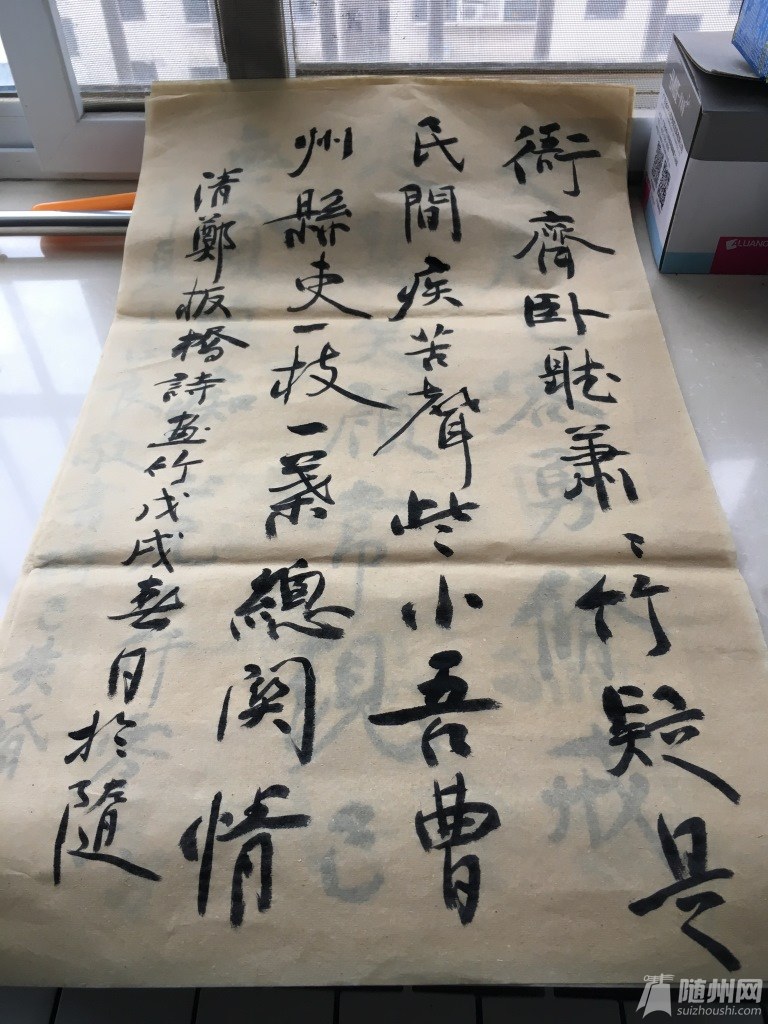 衙齊卧聽蕭〻竹疑是
民間疾苦聲些小吾曹
州縣吏一枝一葉總関情
清鄭板橋詩畫竹戊戌春日於隨
随州网
suizhoushi.com